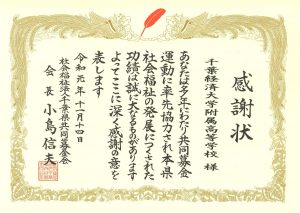 感謝状
千葉経済大学附属高等学校 様
あなたは多年にわたり共同募金
運動に率先協力され本県
社会福祉の発展につくされた
功績は誠に大なるものがあります
よってここに深く感謝の意を
表します
令和元年十一月十四日
社会福祉法人千葉県共同募金会
会長 小島信夫